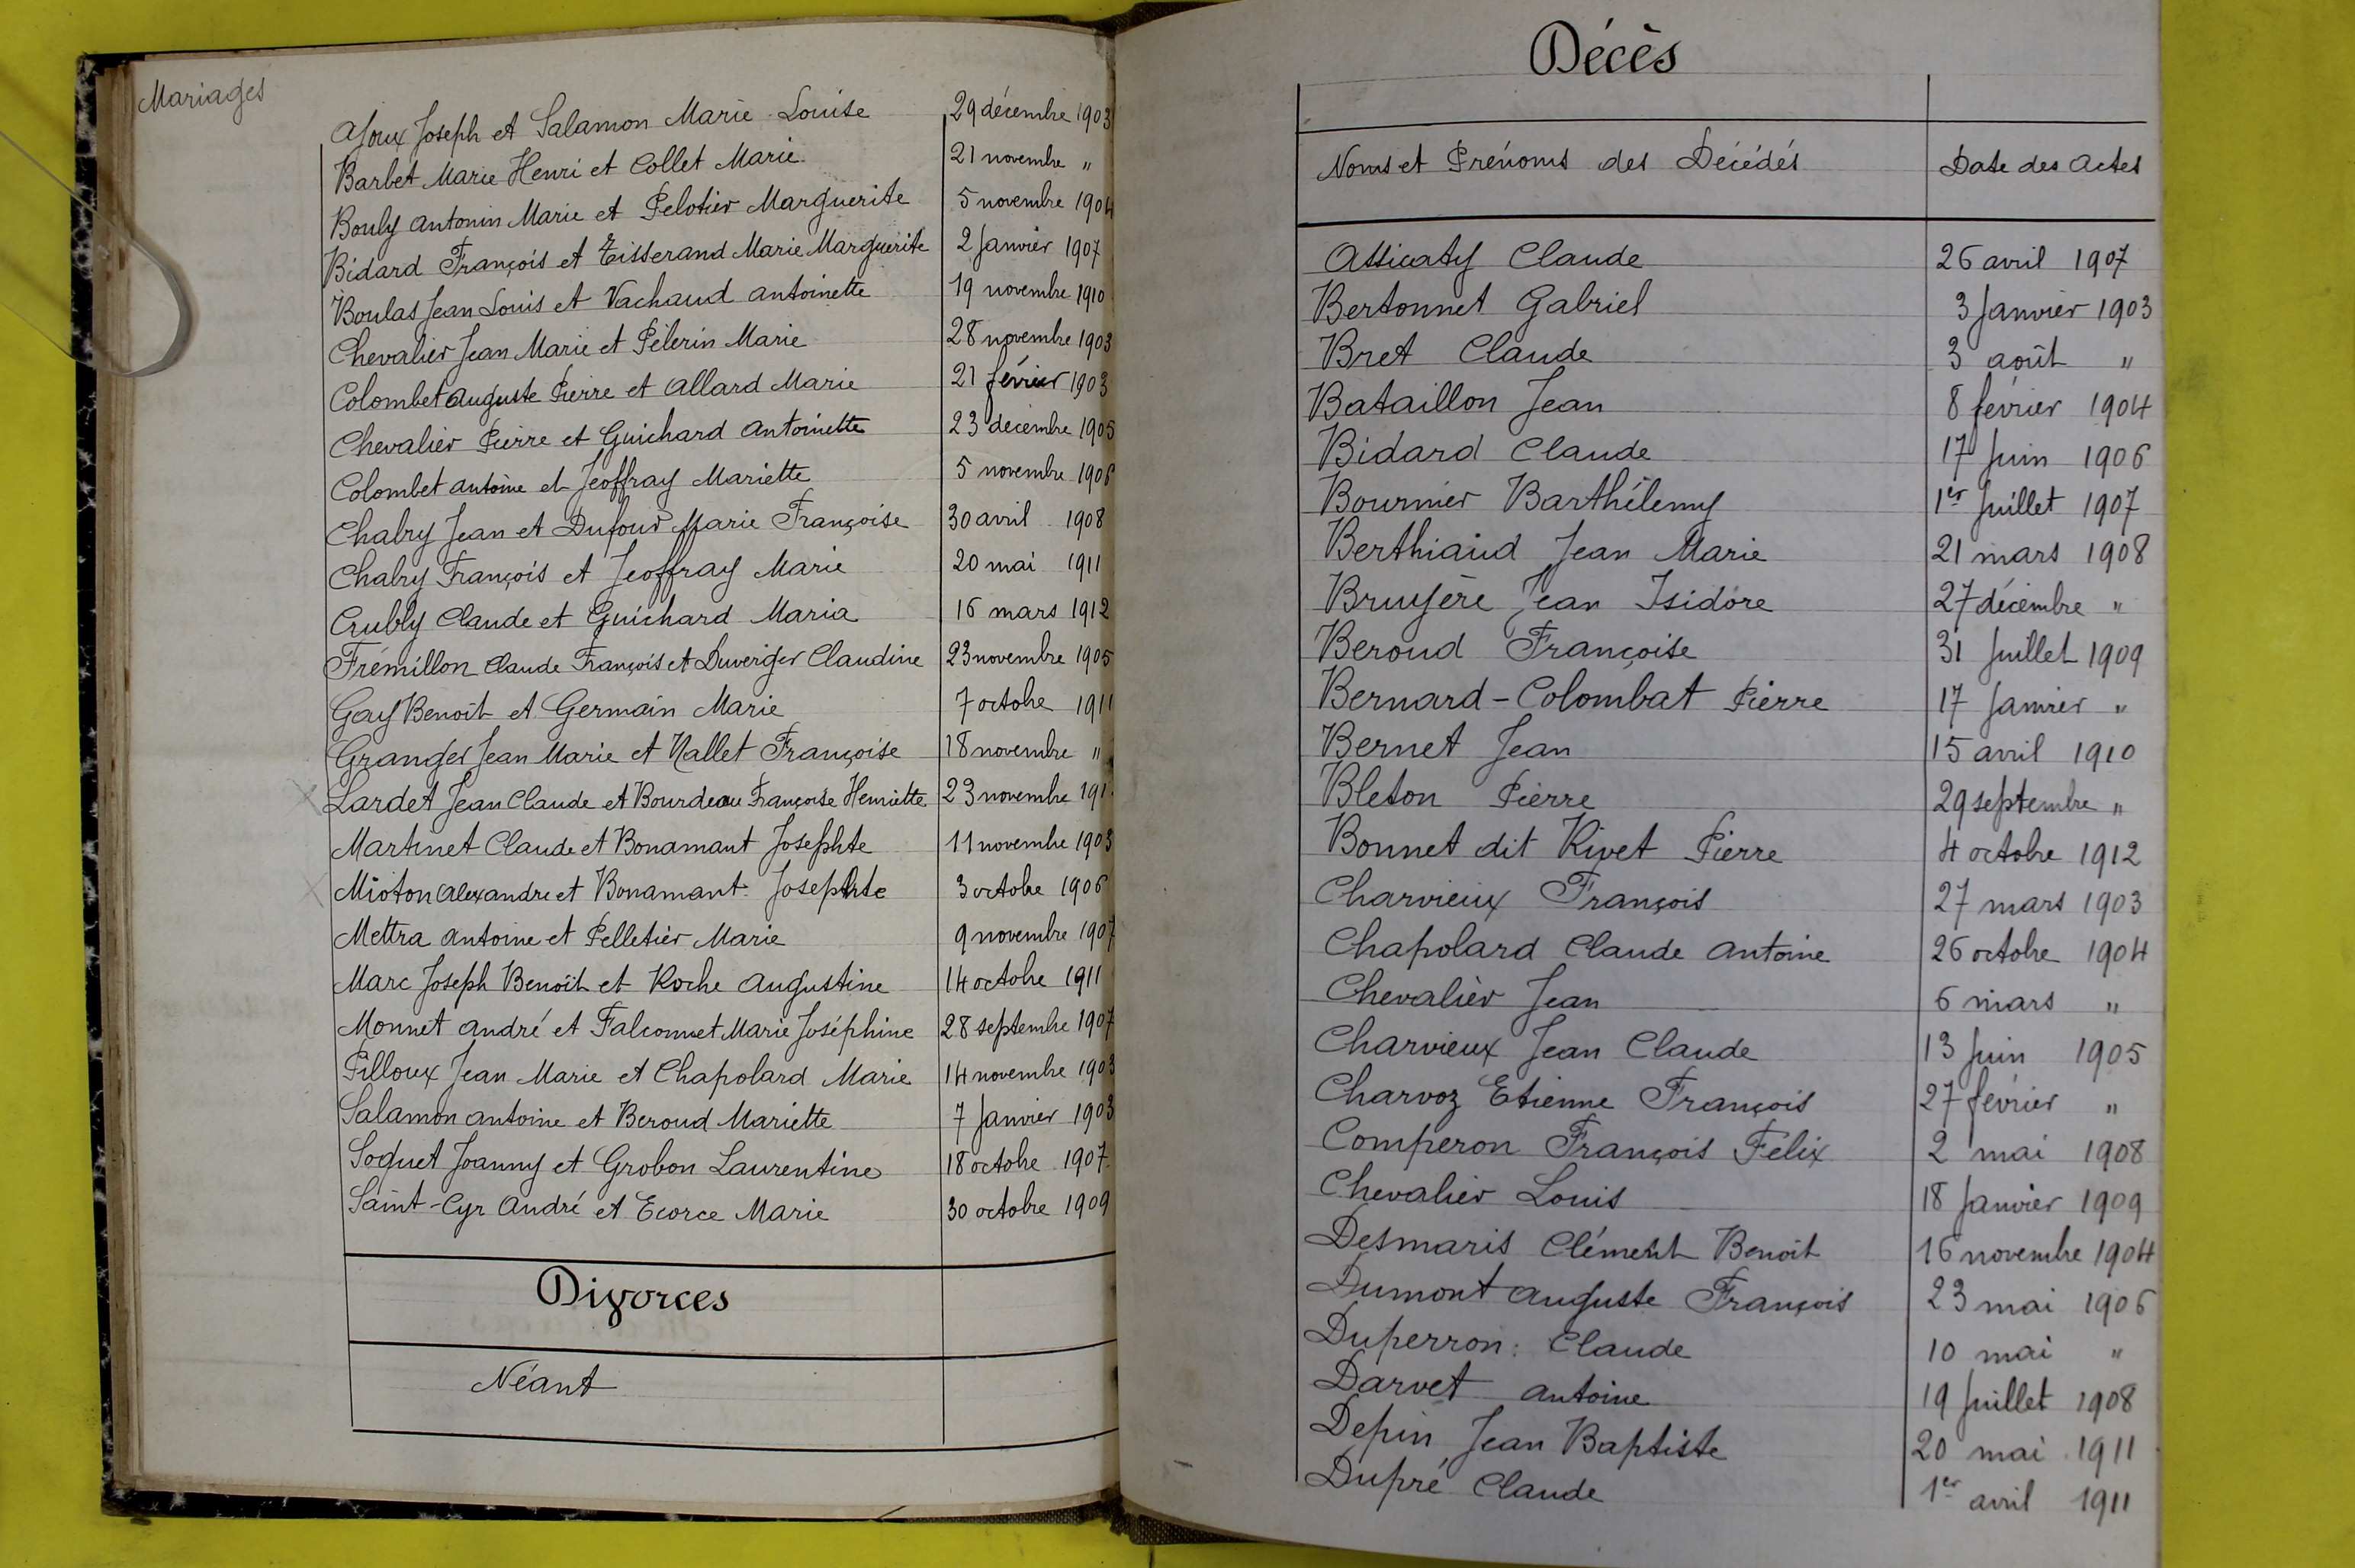 Mariages
Ajoux Joseph et Salamon Marie Louise 29 décembre 1903
Barbet Marie Henri et Collet Marie 21 novembre "
Bouly Antonin Marie et Pelotier Marguerite 5 novembre 1904
Bidard François et Tisserand Marie Marguerite 2 Janvier 1907
Boulas Jean Louis et Vachaud Antoinette 19 novembre 1910
Chevalier Jean Marie et Pélerin Marie 28 novembre 1903
Colombet Auguste Pierre et Allard Marie 21 février 1903
Chevalier Pierre et Guichard Antoinette 23 décembre 1905
Colombet Antoine et Jeoffray Mariette 5 novembre 1906
Chabry Jean et Dufour Marie Françoise 30 avril 1908
Chabry François et Jeoffray Marie 20 mai 1911
Crubly Claude et Guichard Maria 16 mars 1912
Frémillon Claude François et Duverger Claudine 23 novembre 1905
Gay Benoit et Germain Marie 7 octobre 1911
Granger Jean Marie et Nallet Françoise 18 novembre "
Lardet Jean Claude et Bourdeau Françoise Henriette 23 novembre
Martinet Claude et Bonamant Josephte 11 novembre 1903
Mioton Alexandre et Bonamant Josephte 3 octobre 1906
Mettra Antoine et Pelletier Marie 9 novembre 1907
Marc Joseph Benoit et Roche Augustine 14 octobre 1911
Monnet André et Falconnet Marie Joséphine 28 septembre 1907
Pilloux Jean Marie et Chapolard Marie 14 novembre 1903
Salamon Antoine et Beroud Mariette 7 Janvier 1903
Soquet Joanny et Grobon Laurentine 18 octobre 1907
Saint-Cyr André et Ecorce Marie 30 octobre 1909
Divorces
Néant
Décès
Noms et Prénoms des Décédés Date des Actes
Assicaty Claude 26 avril 1907
Bertonnet Gabriel 3 Janvier 1903
Bret Claude 3 août "
Bataillon Jean 8 février 1904
Bidard Claude 17 Juin 1906
Bournier Barthélemy 1er Juillet 1907
Berthiaud Jean Marie 21 mars 1908
Bruyère Jean Isidore 27 décembre "
Beroud Françoise 31 Juillet 1909
Bernard-Colombat Pierre 17 Janvier "
Bernet Jean 15 avril 1910
Bleton Pierre 29 septembre "
Bonnet dit Rivet Pierre 4 octobre 1912
Charvieux François 27 mars 1903
Chapolard Claude Antoine 26 octobre 1904
Chevalier Jean 6 mars "
Charvieux Jean Claude 13 Juin 1905
Charvoz Etienne François 27 février "
Comperon François Félix 2 mai 1908
Chevalier Louis 18 Janvier 1909
Desmaris Clément Benoit 16 novembre 1904
Dumont Auguste François 23 mai 1906
Duperron Claude 10 mai "
Darvet Antoine 19 Juillet 1908
Depin Jean Baptiste 20 mai 1911
Dupré Claude 1er avril 1911